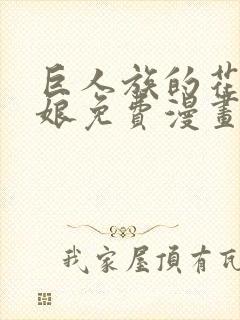 巨人族的花
娘免費漫畫
我家屋頂有瓦